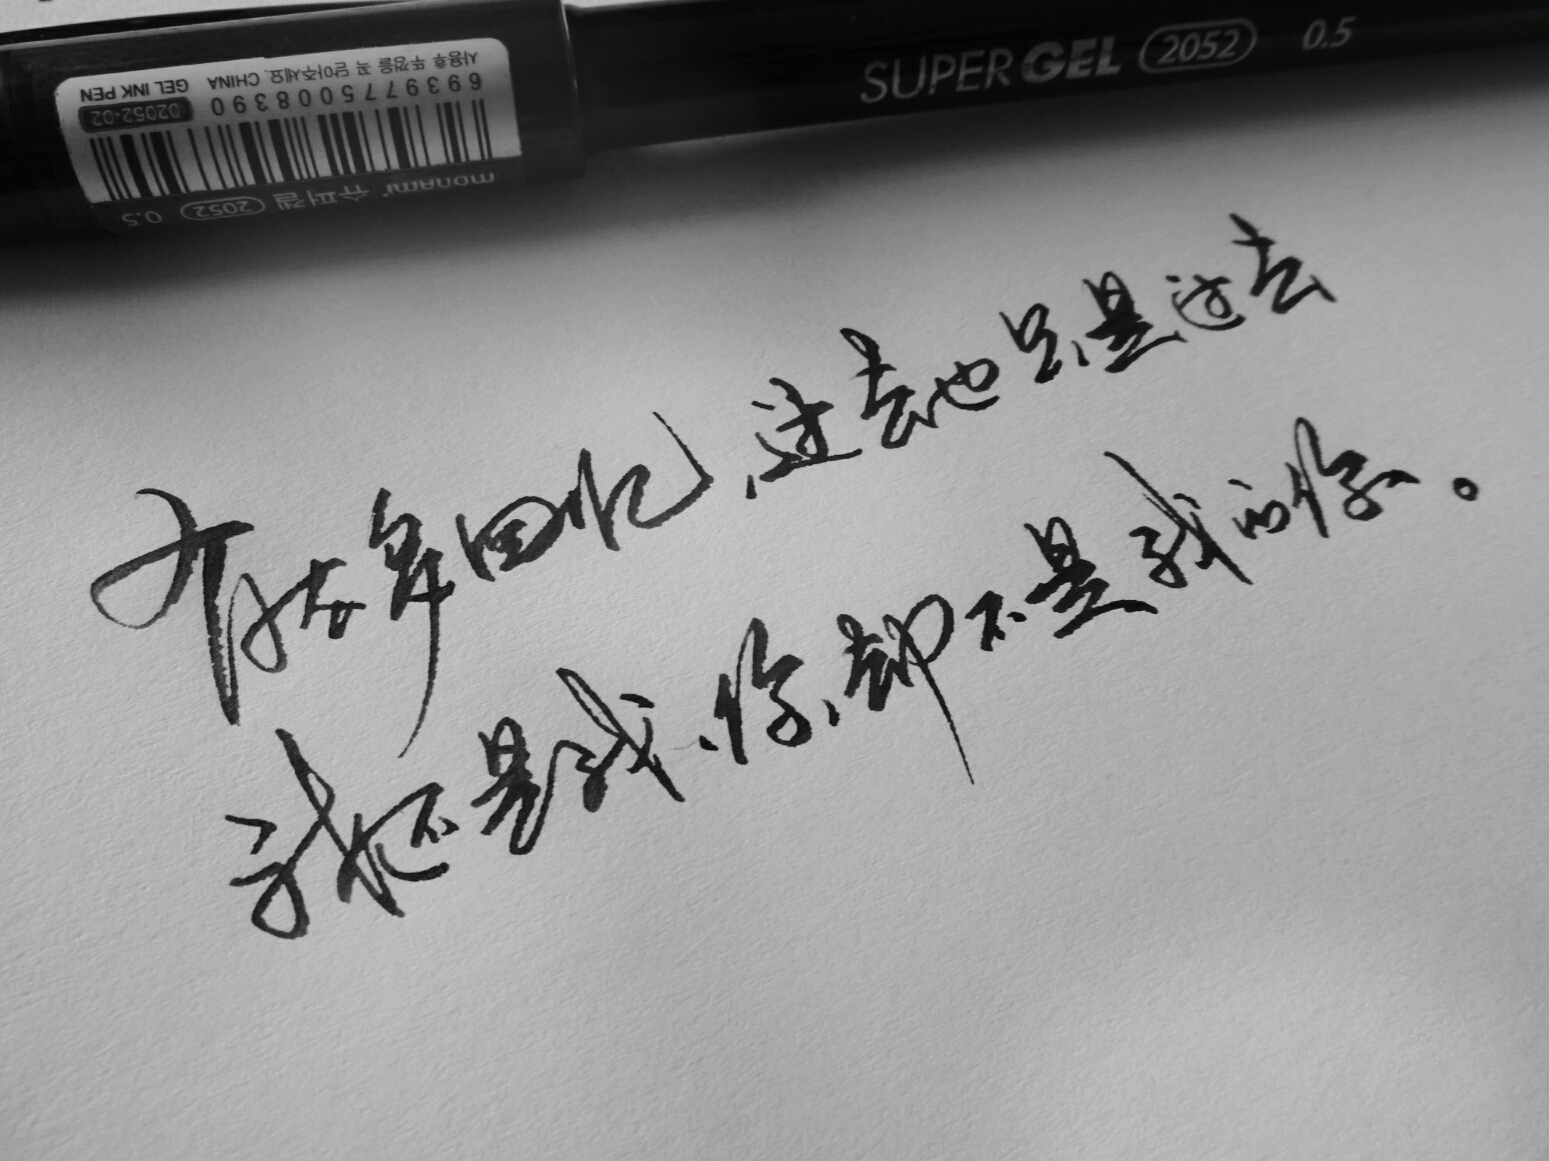 SUPER GEL 2052 0.5
사용후 뚜껑을 꼭 닫아주세요. CHINA GEL INK PEN
6939775008390 02052-02
monami 슈퍼겔 2052 0.5
有故事回忆、过去也只是过去
我还是我、你、却不是我的你。